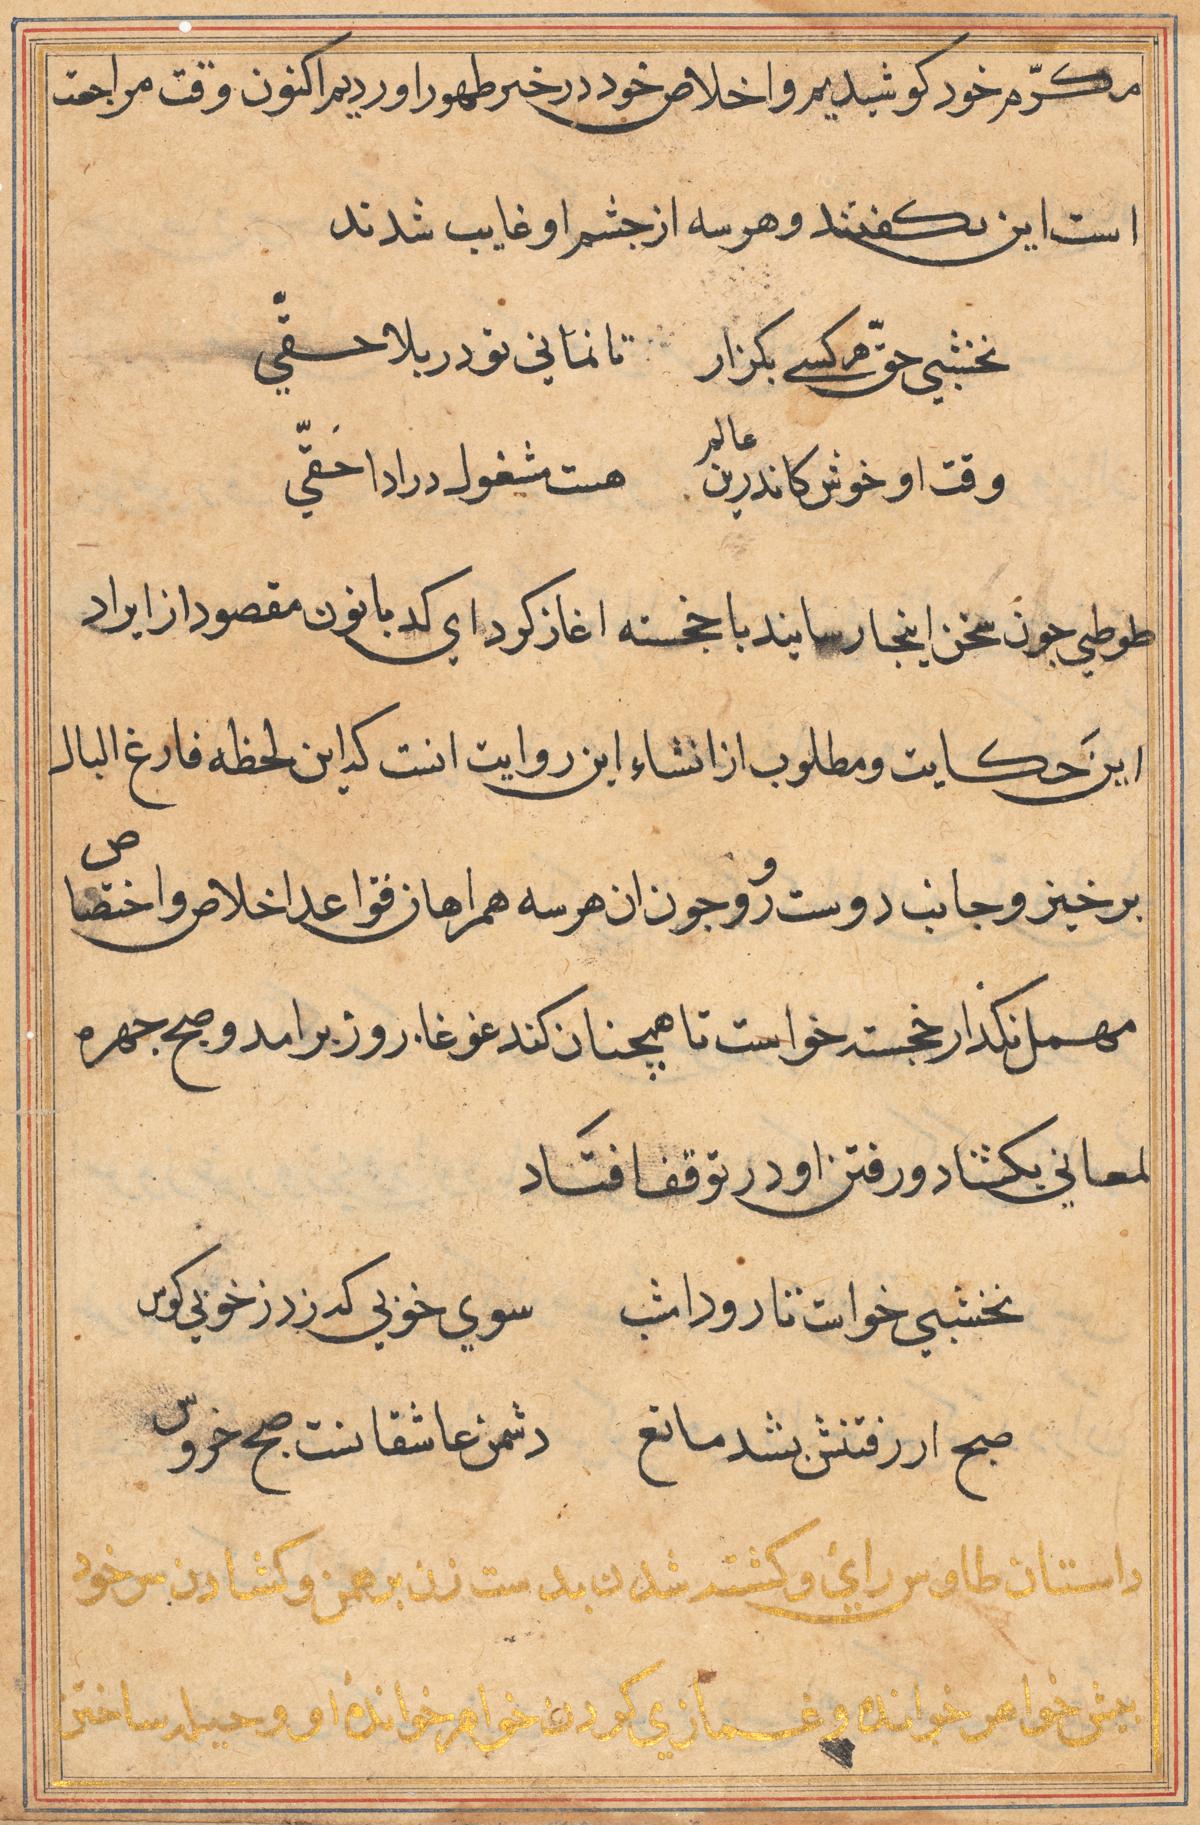 مکرّم خود کوشیدیم و اخلاص خود در خیر ظهور اوردیم اکنون وقت مراجعت
است این بکفتند و هر سه از جشم او غایب شدند
نخشبی حقّ هر کسے بکزار تا نمانی تو در بلا حقّي
وقت او خوش کاندرین عالم هست مشغول در ادا حَقّي
طوطي جون سخن اینجا رسایند با خجسته اغاز کرد اي کد بانون مقصود از ایراد
این حکایت و مطلوب از انشاء این روایت انست که این لحظه فارغ البال
بر خیز و جانب دوست رو و جون ان هر سه همراهان قواعد اخلاص و اختصاص
مهمل نکذار خجسته خواست تا همچنان کند غوغاء روز برامد و صبح جهره
لمعانی بکشاد و رفتن او در توقف افتاد
نخشبي خواست تا رود امشب سوي خوبي که زد ز خوبي کوس
صبح از رفتنش بشد مانع دشمن عاشقانست صبح خروس
داستان طاوس راي و کشته شدن بدست زن برهمن و کشادن سر خود
بیش خواهر خوانده و غمازي کردن خواهر خوانده او و حیله ساختن